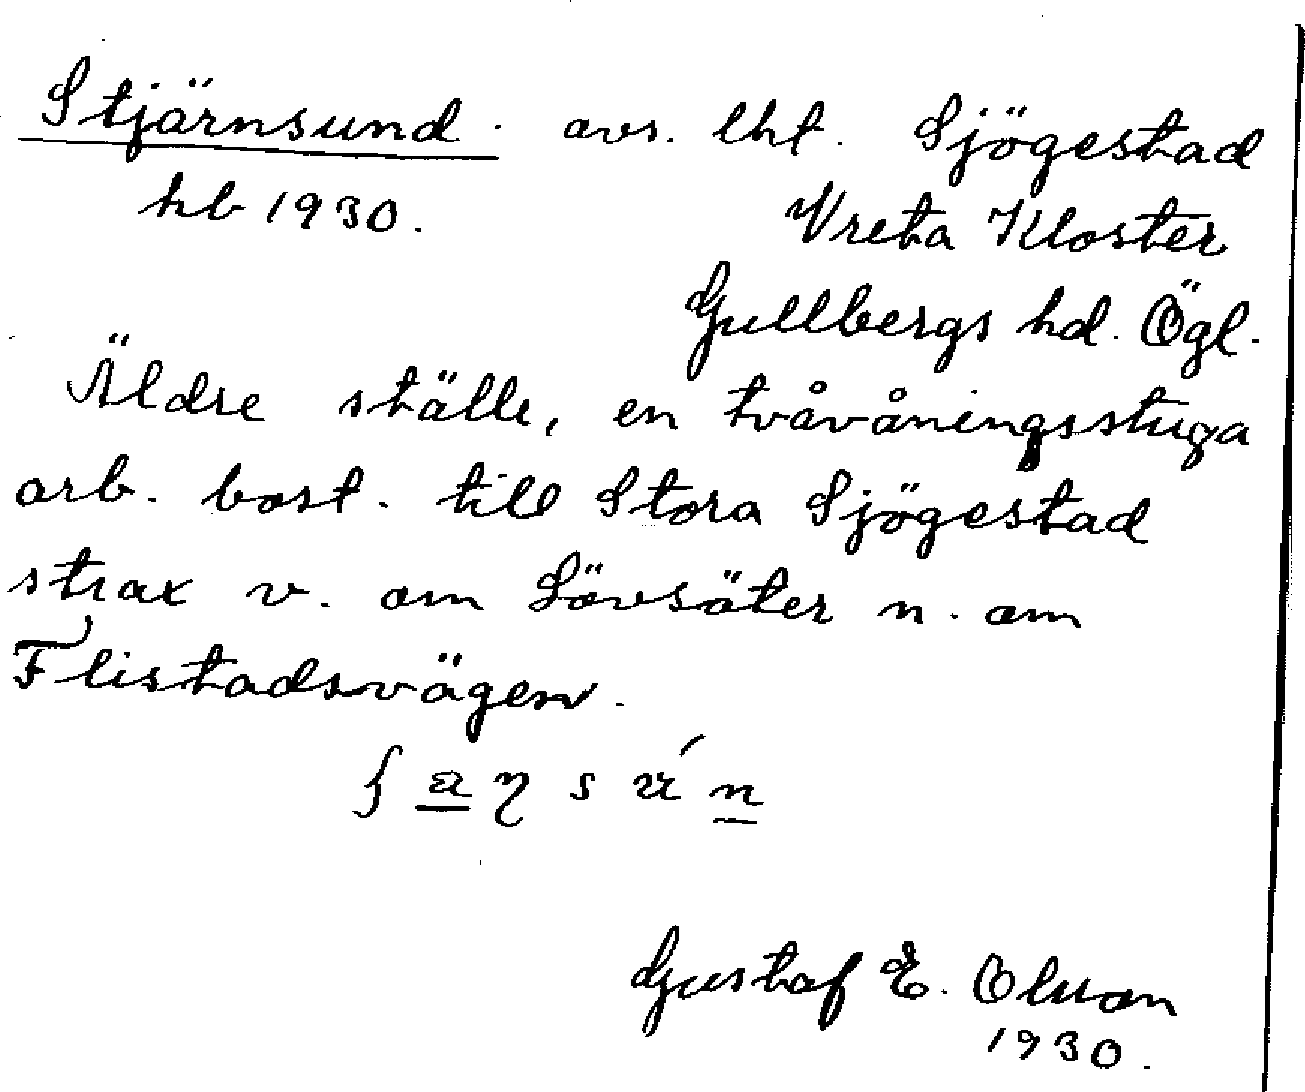 Stjärnsund. avs. lht. Sjögestad
hb 1930. Vreta Kloster
Gullbergs hd. Ögl.
Äldre ställe, en tvåvåningsstuga
arb. bost. till Stora Sjögestad
strax v. om Lövsäter n. om
Flistadsvägen.
Gustaf E. Olsson
1930.